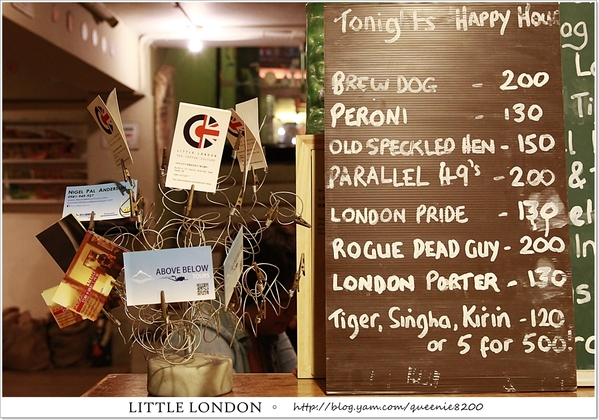 Tonights HAPPY HOUR
BREW DOG - 200
PERONI - 130
OLD SPECKLED HEN - 150
PARALLEL 49's - 200
LONDON PRIDE - 130
ROGUE DEAD GUY - 200
LONDON PORTER - 130
Tiger, Singha, Kirin - 120
or 5 for 500
LITTLE LONDON
NIGEL PAL ANDER
ABOVE BELOW
LITTLE LONDON 。 http://blog.yam.com/queenie8200